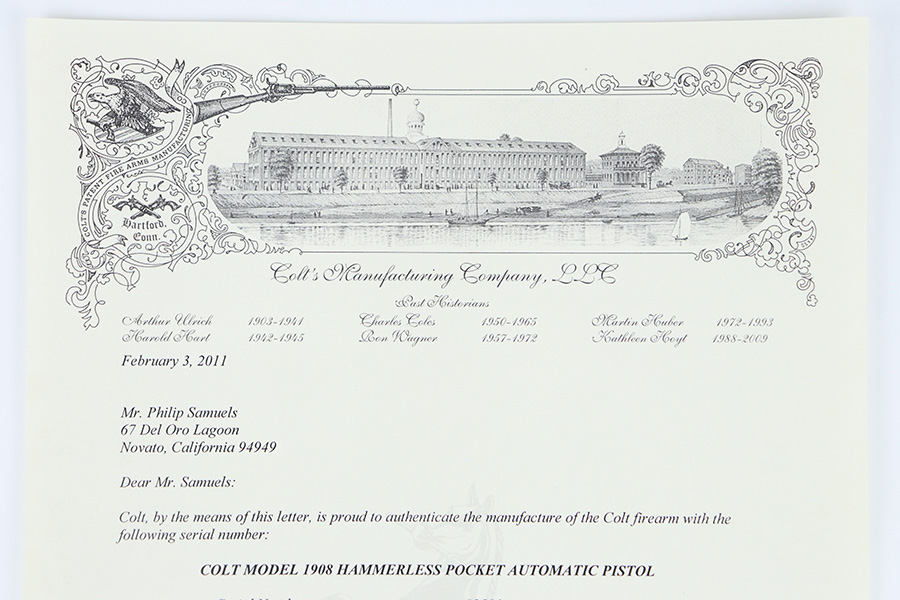 COLT'S PATENT FIRE ARMS MANUFACTURING
Hartford,
Conn.
Colt's Manufacturing Company, LLC
Past Historians
Arthur Ulrich 1903-1941 Charles Coles 1950-1965 Martin Huber 1972-1993
Harold Hart 1942-1945 Ron Wagner 1957-1972 Kathleen Hoyt 1988-2009
February 3, 2011
Mr. Philip Samuels
67 Del Oro Lagoon
Novato, California 94949
Dear Mr. Samuels:
Colt, by the means of this letter, is proud to authenticate the manufacture of the Colt firearm with the
following serial number:
COLT MODEL 1908 HAMMERLESS POCKET AUTOMATIC PISTOL